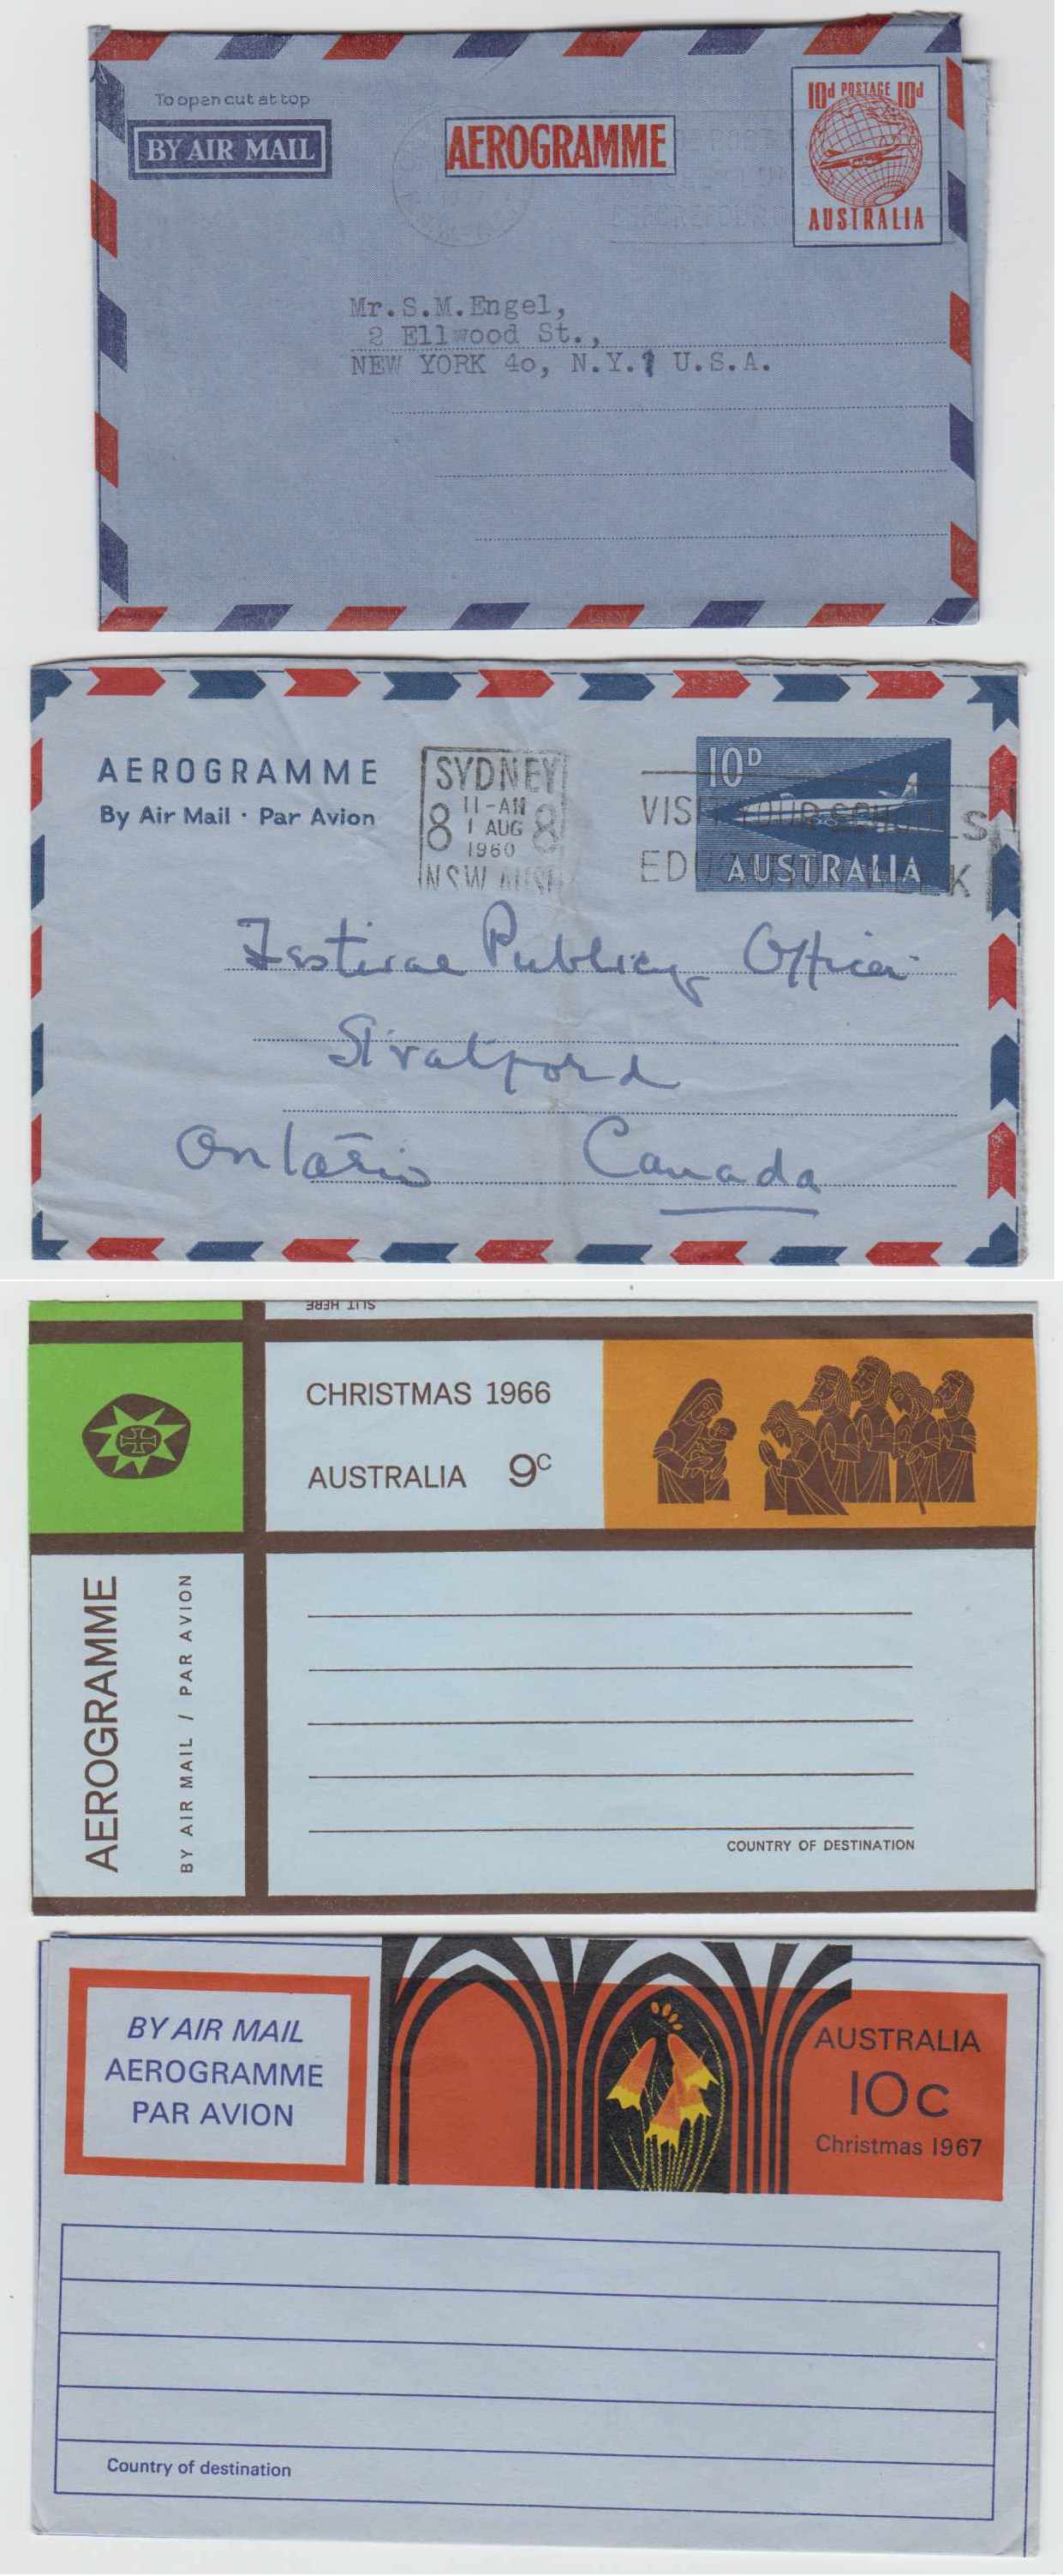 To open cut at top
BY AIR MAIL
AEROGRAMME
10d POSTAGE 10d
AUSTRALIA
Mr.S.M.Engel,
2 Ellwood St.,
NEW YORK 40, N.Y. U.S.A.
AEROGRAMME
By Air Mail · Par Avion
SYDNEY
11-AM
8 1 AUG 8
1960
NSW AUST
10D
VISIT YOUR SCHOOLS
EDUCATION WEEK
AUSTRALIA
Festival Publicity Officer
Stratford
Ontario Canada
SLIT HERE
CHRISTMAS 1966
AUSTRALIA 9c
AEROGRAMME
BY AIR MAIL / PAR AVION
COUNTRY OF DESTINATION
BY AIR MAIL
AEROGRAMME
PAR AVION
AUSTRALIA
10c
Christmas 1967
Country of destination